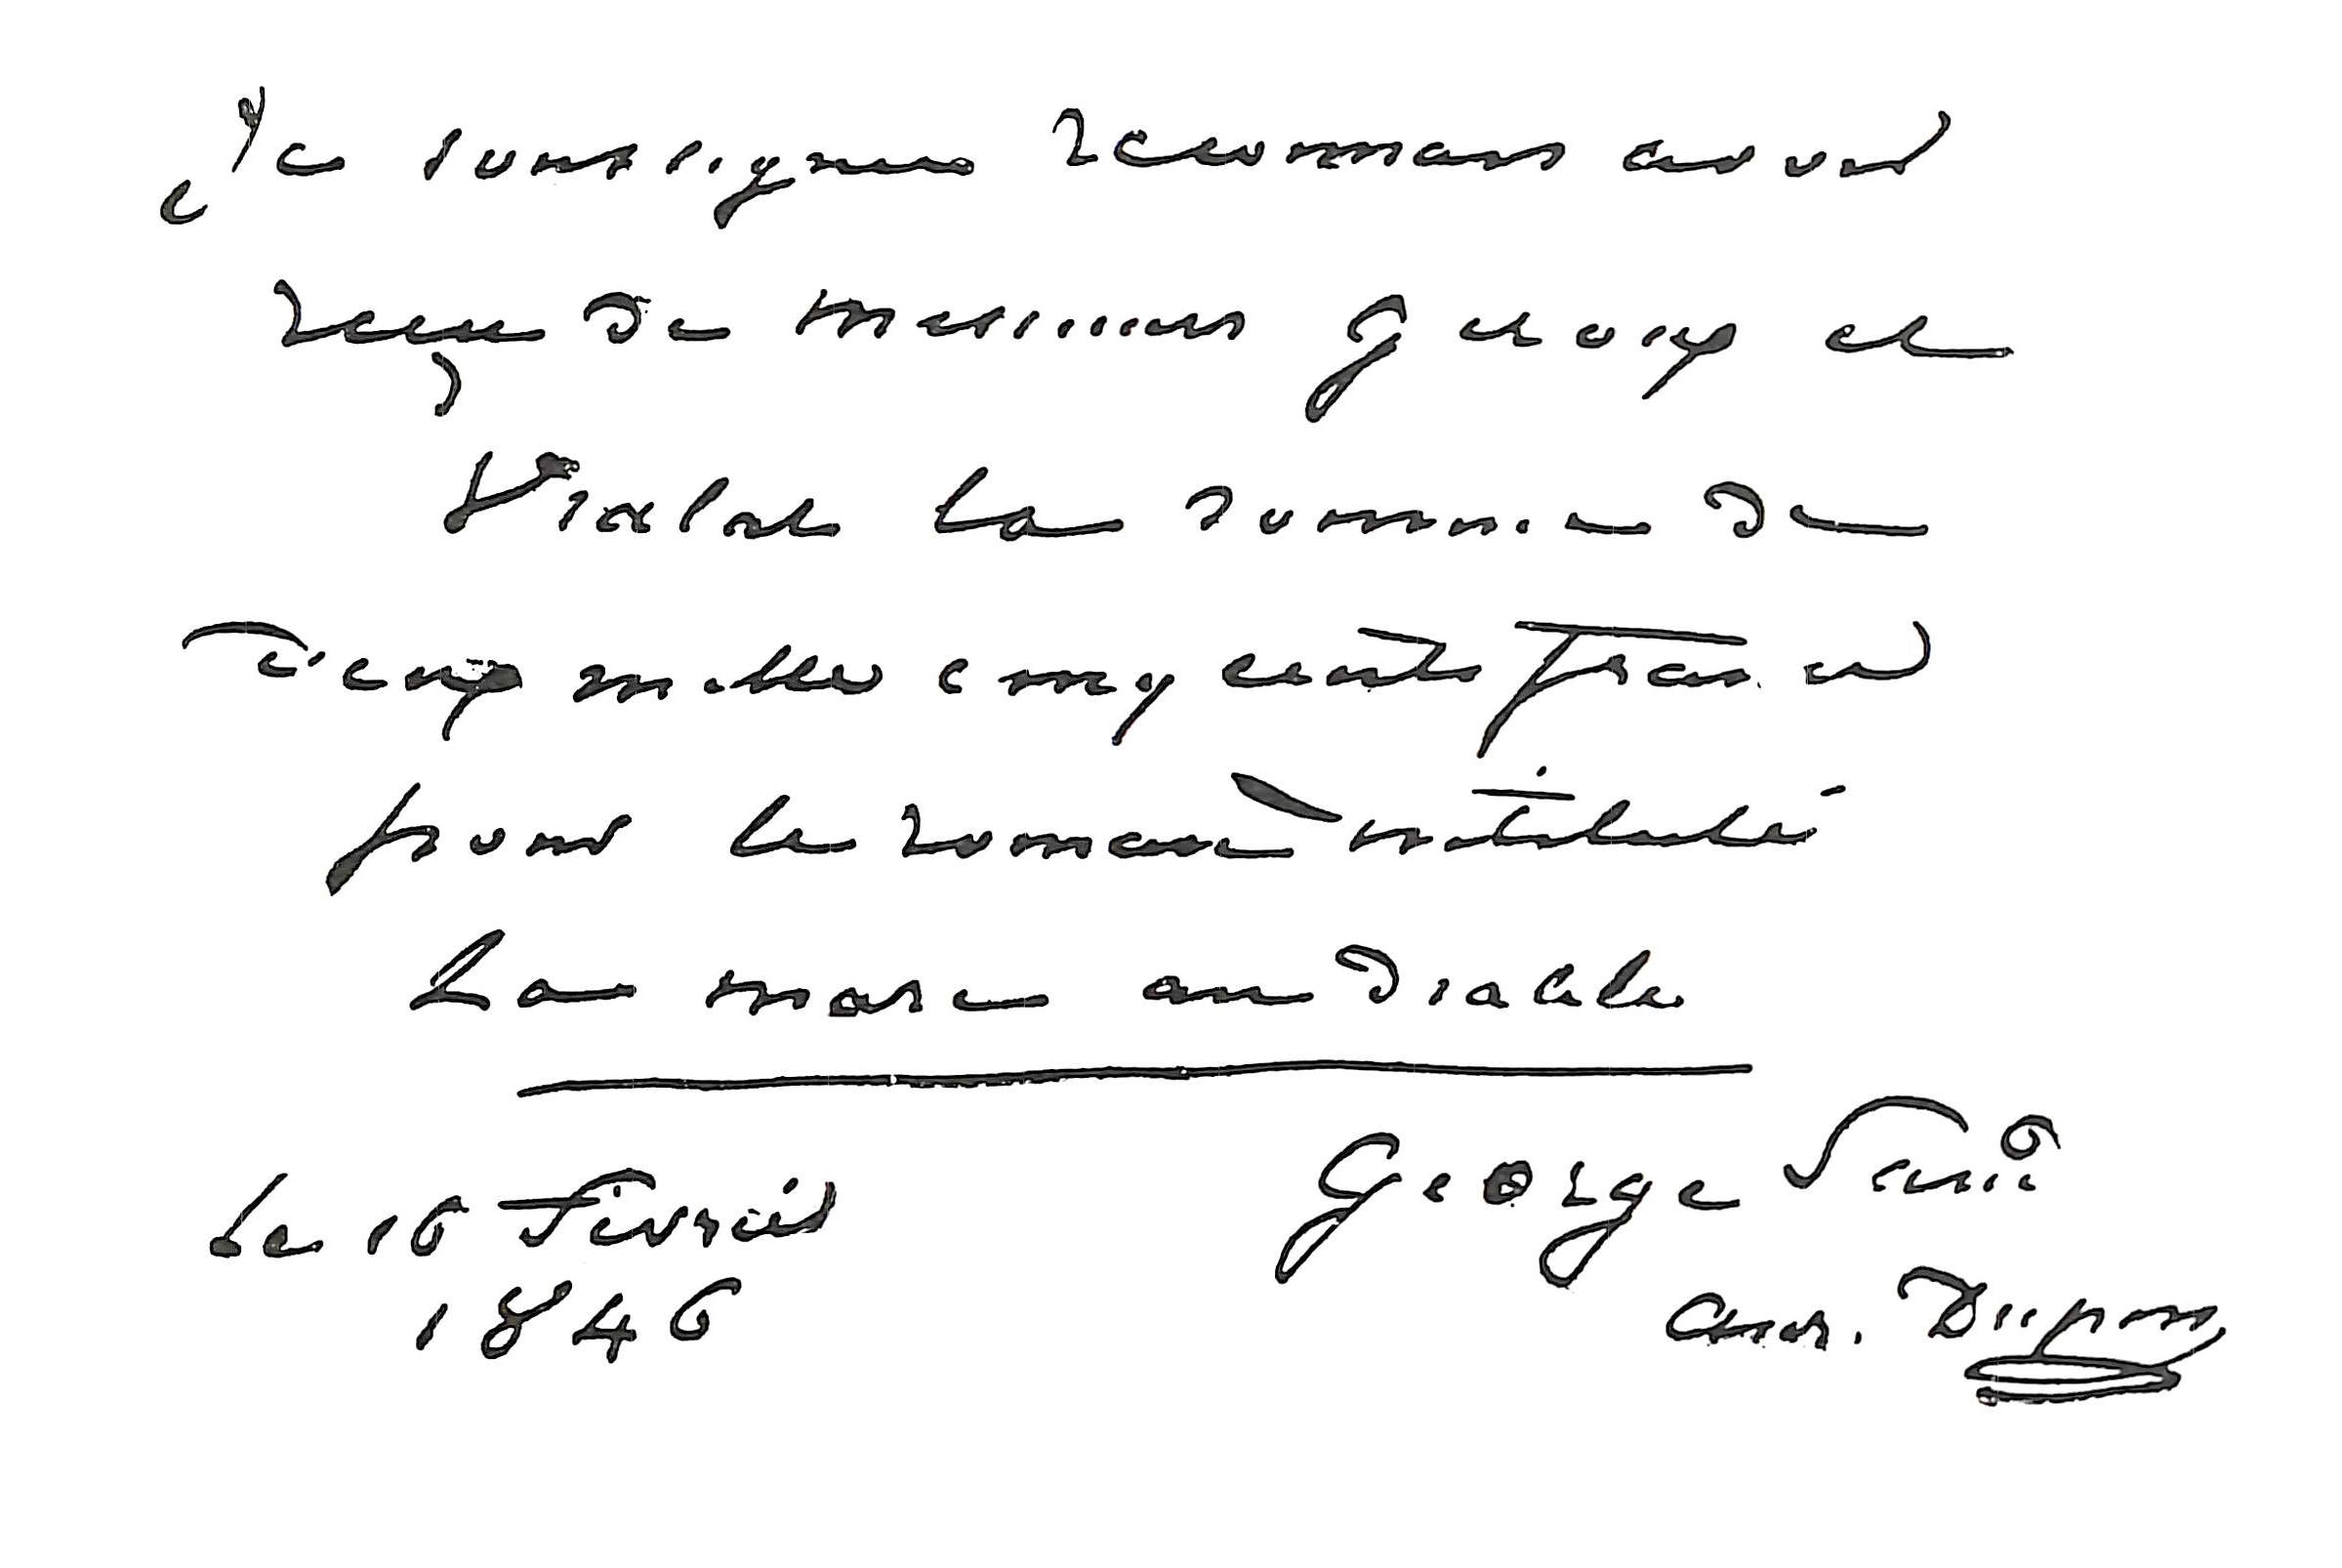 Je soussigné reconnais avoir
reçu de messieurs Giroux et
Vialat la somme de
Deux mille cinq cents francs
pour le roman intitulé
La mare au diable
George Sand
le 16 février
1846
Aur. Dupin